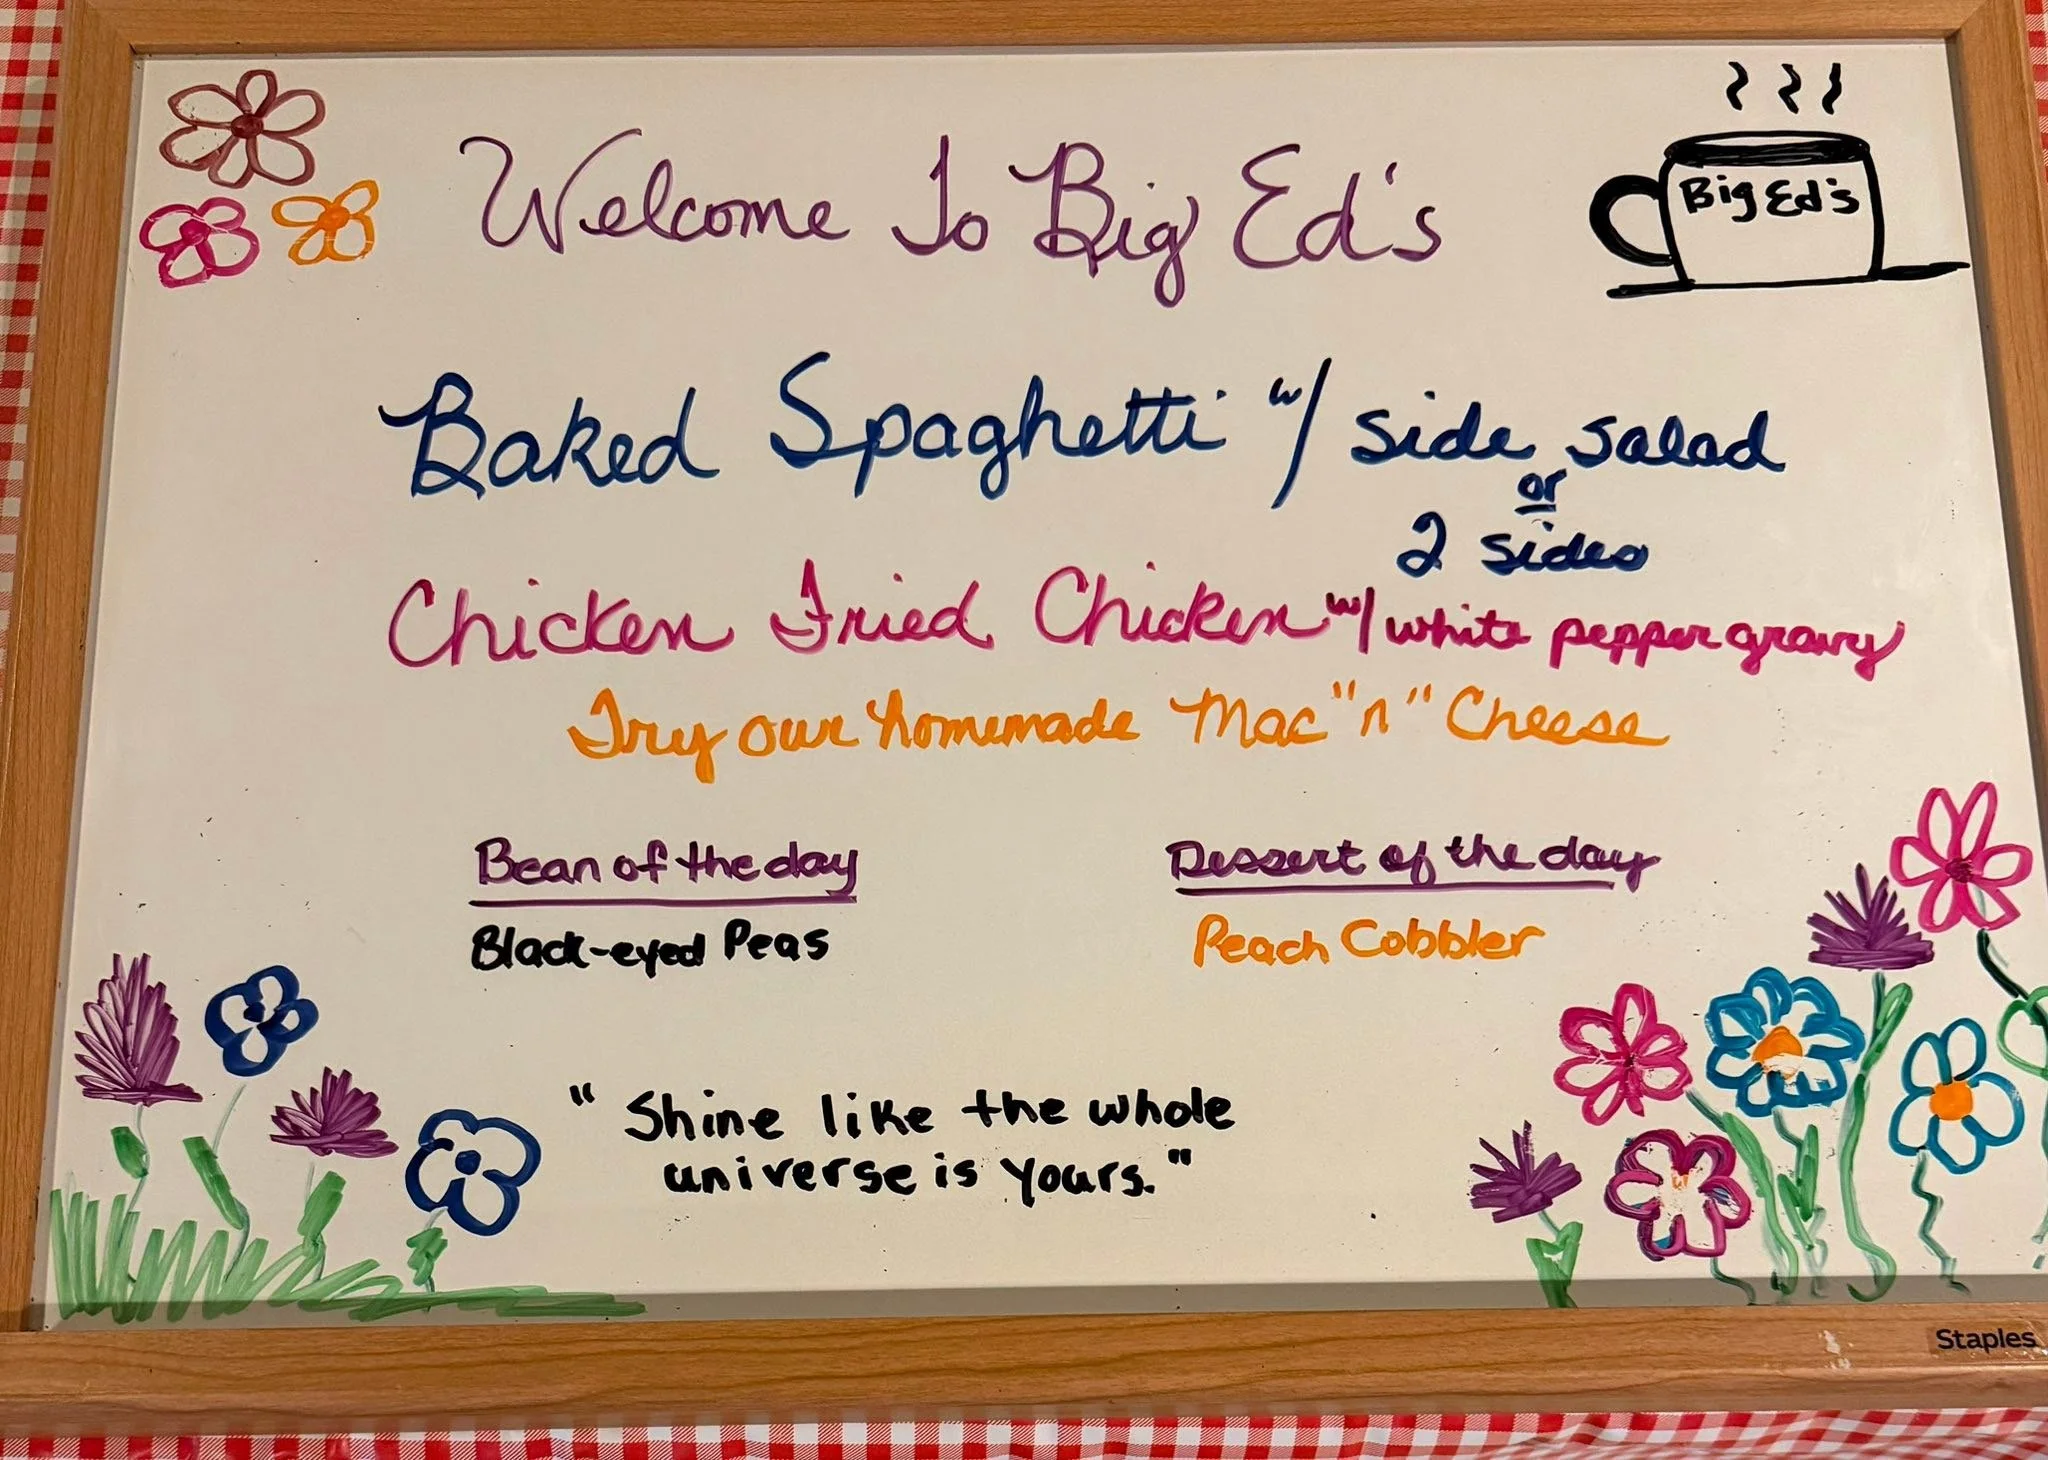 Welcome To Big Ed's
Big Ed's
Baked Spaghetti w/ side salad
or
2 sides
Chicken Fried Chicken w/ white pepper gravy
Try our homemade Mac "n" Cheese
Bean of the day
Black-eyed Peas
Dessert of the day
Peach Cobbler
"Shine like the whole
universe is yours."
Staples